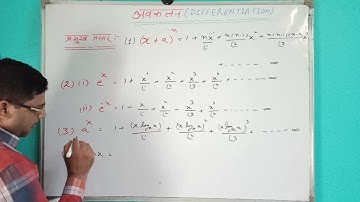 अवकलन (DIFFERENTIATION)
प्रमुख प्रसार :- (1) (x + a)^n = 1 + nx/⌊1 + n(n-1)x²/⌊2 + n(n-1)(n-2)x³/⌊3
+ ..... ∞
(2) (i) e^x = 1 + x/⌊1 + x²/⌊2 + x³/⌊3 + x⁴/⌊4 + ..... ∞
(ii) e^-x = 1 - x/⌊1 + x²/⌊2 - x³/⌊3 + x⁴/⌊4 ..... ∞
(3) a^x = 1 + (x log a)/⌊1 + (x log a)²/⌊2 + (x log a)³/⌊3 + ..... ∞
x =